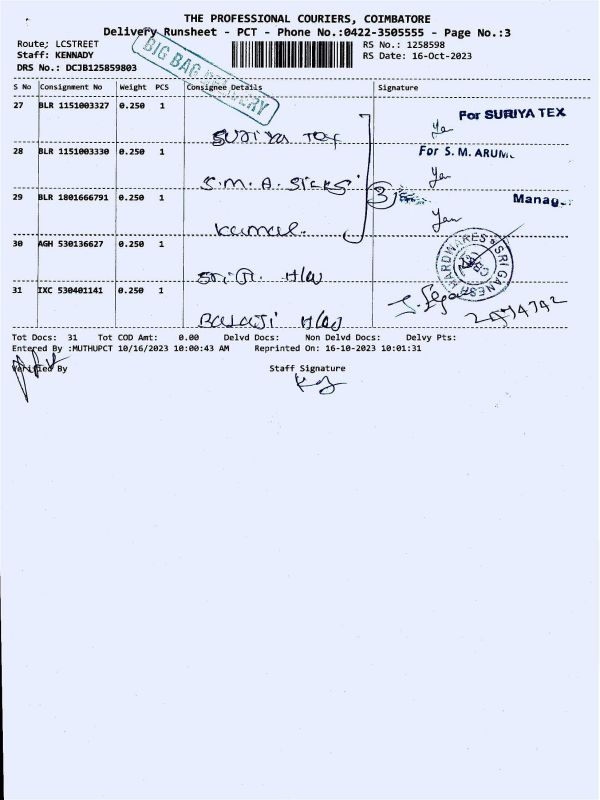 THE PROFESSIONAL COURIERS, COIMBATORE
Delivery Runsheet - PCT - Phone No.:0422-3505555 - Page No.:3
Route; LCSTREET RS No.: 1258598
Staff: KENNADY RS Date: 16-Oct-2023
DRS No.: DCJB125859803
BIG BAG DELIVERY
S No Consignment No Weight PCS Consignee Details Signature
27 BLR 1151003327 0.250 1 For SURIYA TEX
SURIYA TEX
28 BLR 1151003330 0.250 1 For S. M. ARUM
S.M.A. SILKS
29 BLR 1801666791 0.250 1 3 Manag
Kamal.
30 AGH 530136627 0.250 1 SRI GANESH HARDWARES
Sri G. H/W
31 IXC 530401141 0.250 1
BALAJI H/W
Tot Docs: 31 Tot COD Amt: 0.00 Delvd Docs: Non Delvd Docs: Delvy Pts:
Entered By :MUTHUPCT 10/16/2023 10:00:43 AM Reprinted On: 16-10-2023 10:01:31
Verified By Staff Signature